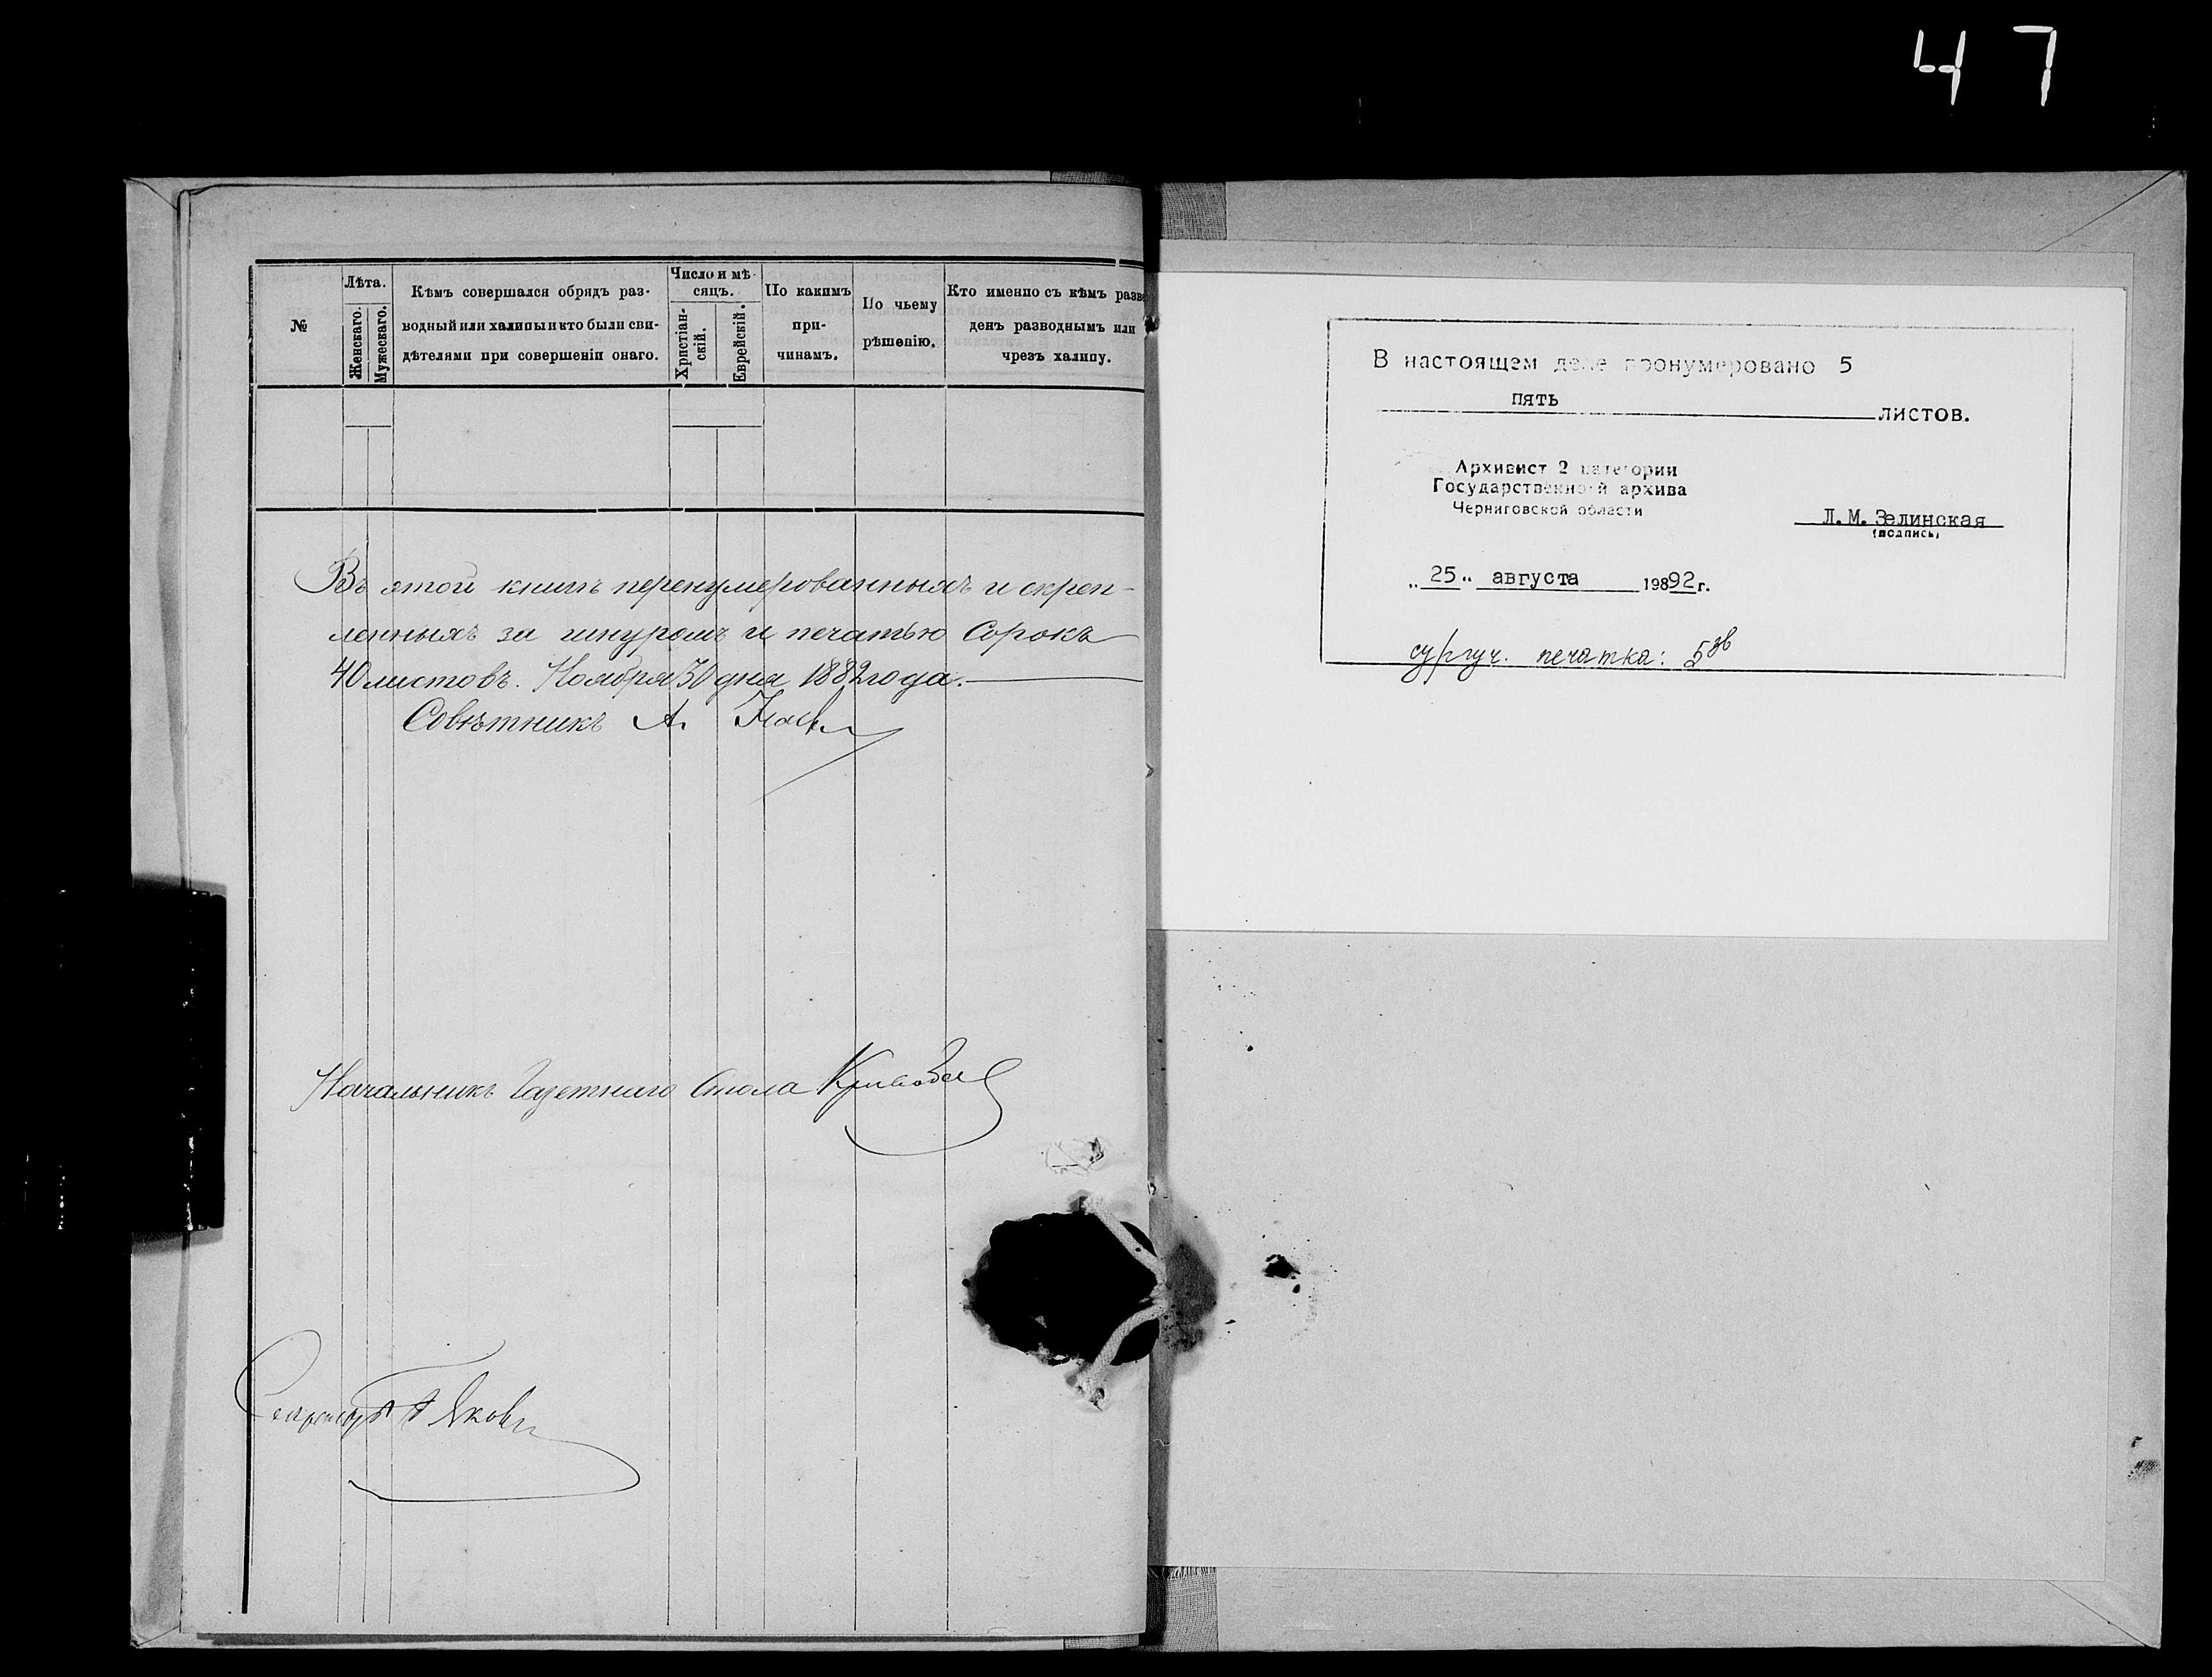 47
№
Лѣта.
Женскаго.
Мужескаго.
Кѣмъ совершался обрядъ раз-
водный или халицы и кто были сви-
дѣтелями при совершеніи онаго.
Число и мѣ-
сяцъ.
Христіан-
скій.
Еврейскій.
По какимъ
при-
чинамъ.
По чьему
рѣшенію.
Кто именно съ кѣмъ разве
денъ разводнымъ или
чрезъ халицу.
Въ этой книгѣ перенумерованныхъ и скреп-
ленныхъ за шнуромъ и печатью Сорокъ
40 листовъ. Ноября 30 дня 1882 года.
Совѣтникъ А.
Начальникъ Газетнаго Стола
Секретарь
В настоящем деле пронумеровано 5
пять
листов.
Архивист 2 категории
Государственной архива
Черниговской области
Л.М.Зелинская
(подпись)
„ 25 " августа 19892 г.
сургуч. печатка: 5зв